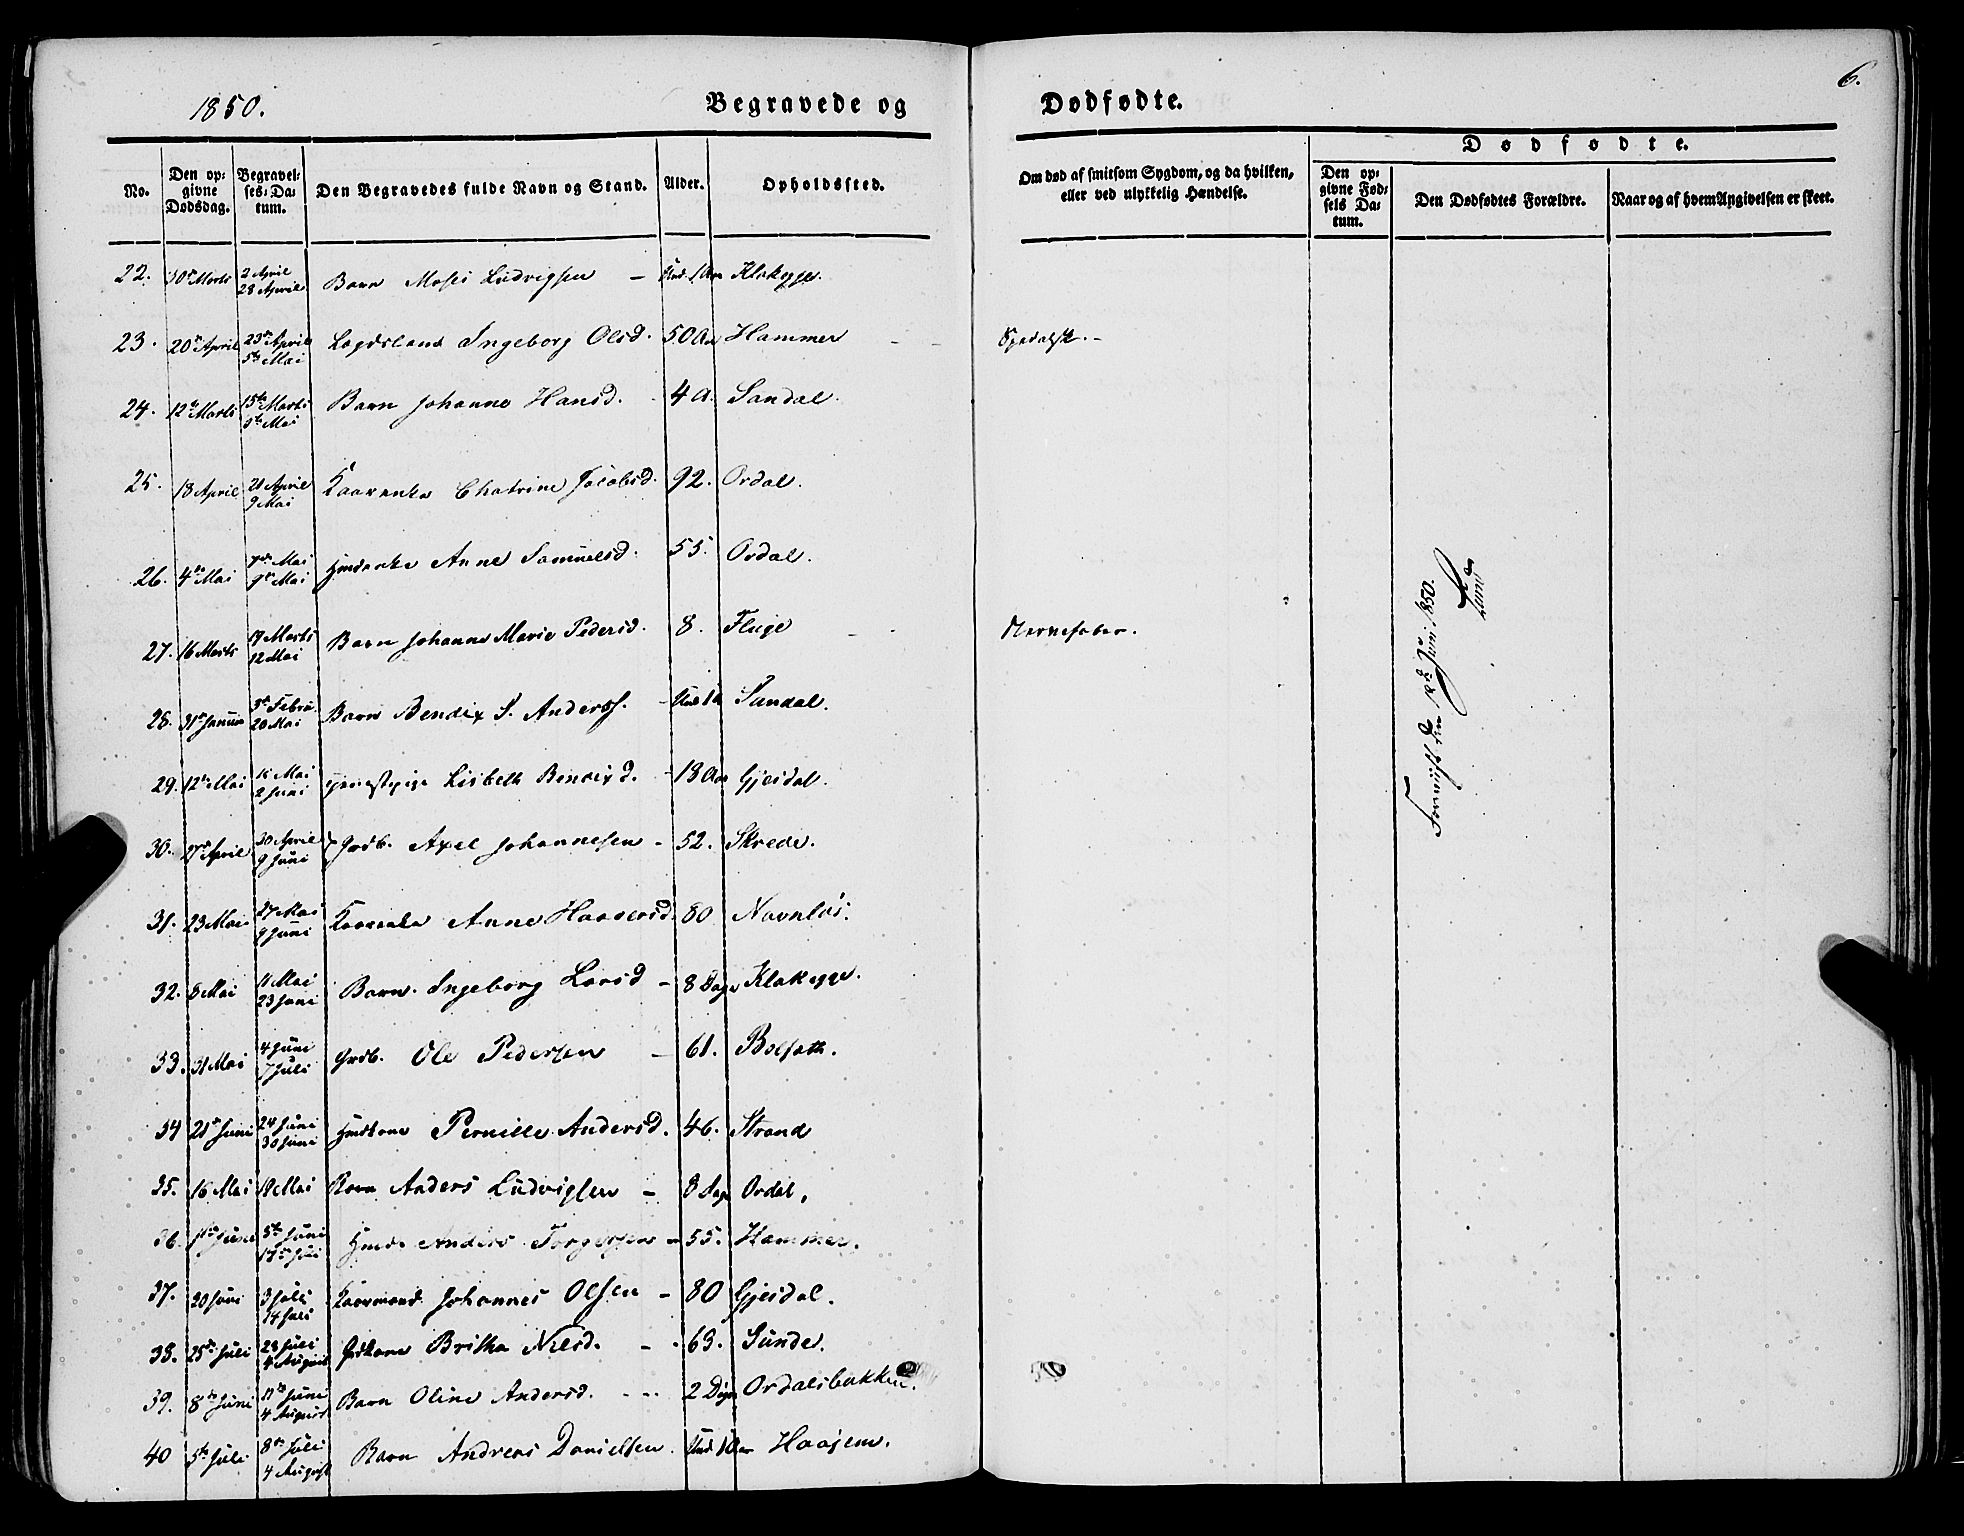 1850.
Begravede og Dødfødte.
6.
No. Den opgivne Dødsdag. Begravelses-Datum. Den Begravedes fulde Navn og Stand. Alder. Opholdssted. Om død af smitsom Sygdom, og da hvilken, eller ved ulykkelig Hændelse.
Dødfødte.
Den opgivne Fødsels Datum. Den Dødfødtes Forældre. Naar og af hvem Angivelsen er skeet.
22. 30te Marts 2 April 28 April Barn Moses Ludvigsen – Und. 1 Aar Klakegge.
23. 20de April 23de April 5te Mai Lægdslem Ingeborg Olsd. 50 Aar Hammer – – Spedalsk. –
24. 12te Marts 15de Marts 5te Mai Barn Johanne Hansd. 4 A. Sandal.
25. 18 April 21 April 9 Mai Kaarenke Chatrine Jacobsd. 92. Ordal.
26. 4de Mai 7de Mai 9de Mai Hmdenke Anne Samuelsd. 55. Ordal.
27. 16 Marts 19 Marts 12 Mai Barn Johanne Marie Pedersd. 8. Fluge – – Nervefeber.
28. 31te Januar 3de Febru. 20 Mai Barn Bendix S. Anderss. – Und 1 A Sandal.
29. 12te Mai 15 Mai 2 Juni Tjenestepige Lisbeth Bendixd. – 18 Aar Gjesdal.
30. 27de April 30 April 9 Juni Grdb. Axel Johannesen – 52. Skrede.
31. 23 Mai 27 Mai 9 Juni Kaarenke Anne Haagensd. 80 Navnløs.
32. 8 Mai 11 Mai 23 Juni Barn Ingeborg Larsd – 8 Dage Klakegge.
33. 31 Mai 4 Juni 7 Juli Grdb. Ole Pedersen – 61. Bolsæth.
34 21de Juni 24 Juni 30 Juni Hmdkone Pernille Andersd. 46. Strand
35. 16 Mai 19 Mai Barn Anders Ludvigsen – 8 Dage Ordal.
36. 1ste Juni 5te Juni Hmd. Anders Torgersen – 55. Hammer.
37. 20 Juni 3 Juli 14 Juli Kaarmand Johannes Olsen – 80 Gjesdal.
38. 25de Juli 28 Juli 4 August Grdkone Britha Nilsd. – 63. Sunde.
39. 8de Juni 11te Juni 4 August Barn Oline Andersd. – – 2 Dage Ordalsbakken.
40 5te Juli 8de Juli 4 August Barn Andreas Danielsen Und 1 Aar Haajem.
den 18de Juni 1850.